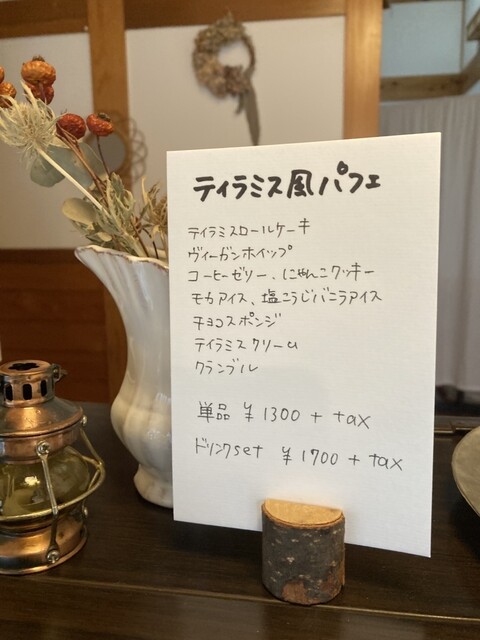 ティラミス風パフェ
ティラミスロールケーキ
ヴィーガンホイップ
コーヒーゼリー、にゃんこクッキー
モカアイス、塩こうじバニラアイス
チョコスポンジ
ティラミスクリーム
クランブル
単品 ¥1300 + tax
ドリンクset ¥1700 + tax